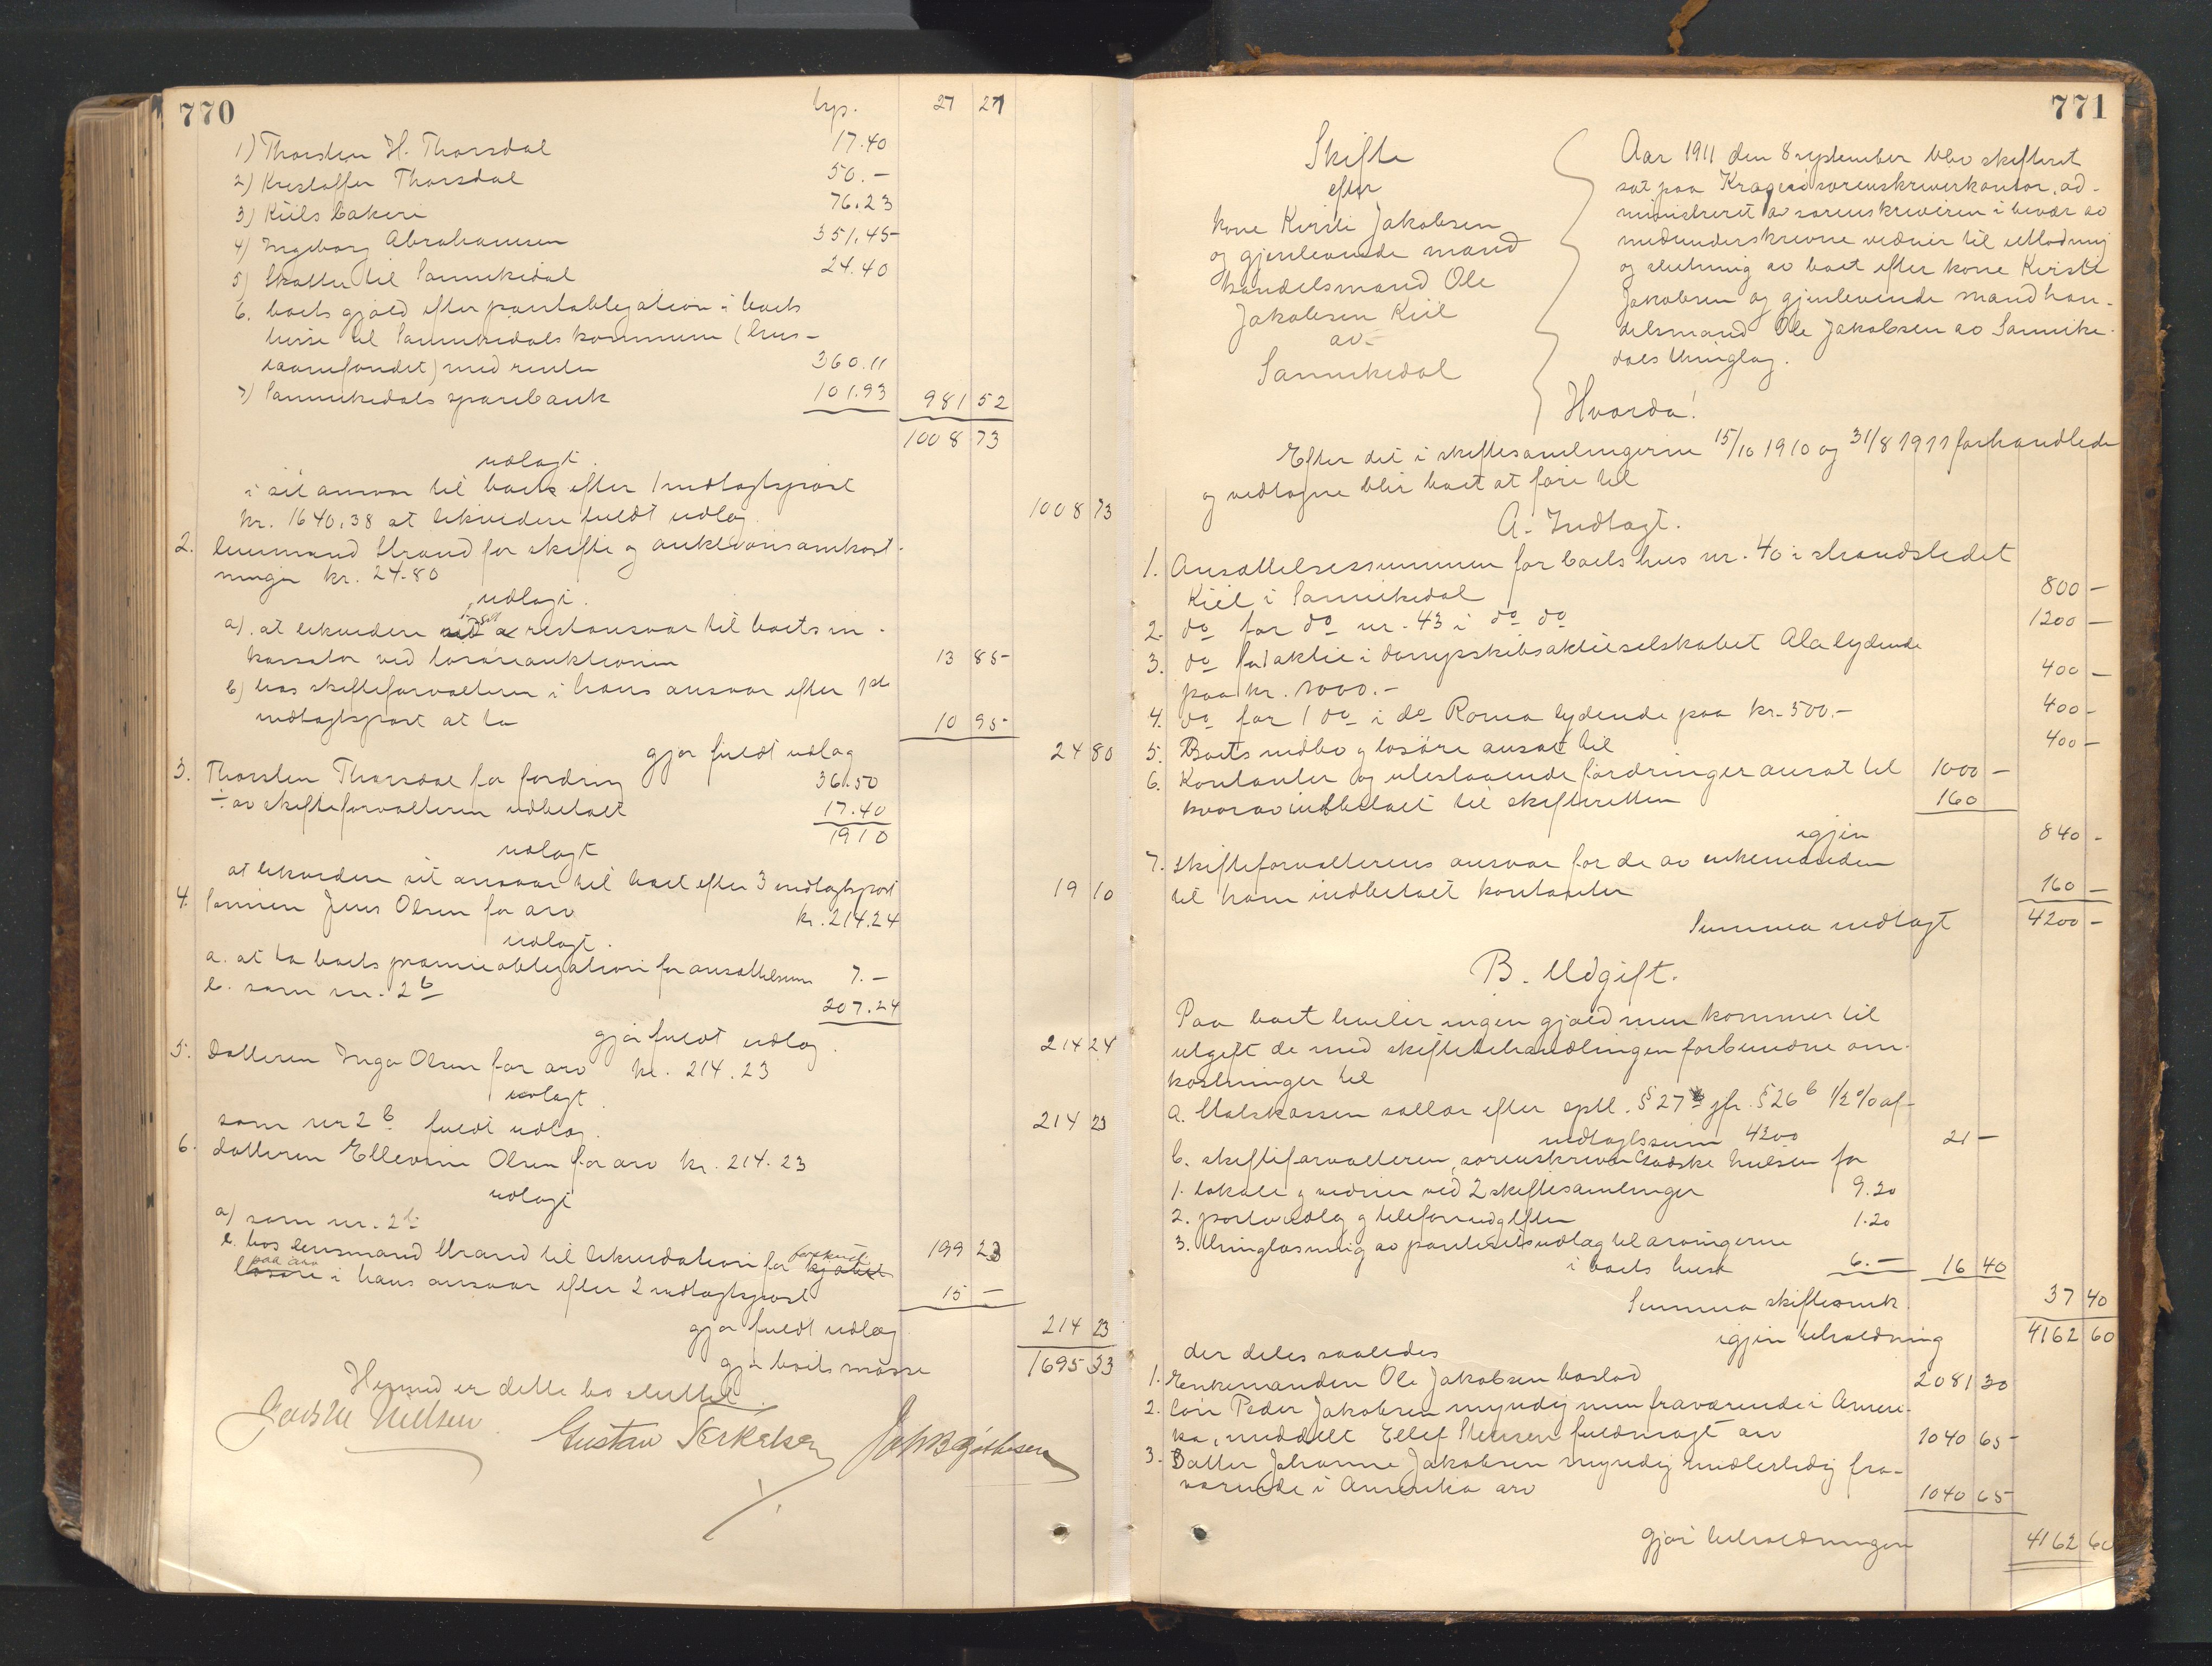 770
trp. 27 27
1) Thorsten H. Thorsdal 17.40
2) Kristoffer Thorsdal 50.-
3) Kiils bakeri 76.23
4) Ingeborg Abrahamsen 351.45
5) Skatter til Sannikedal 24.40
6. boets gjæld efter pantobligation i boets
huse til Sannikedals kommune (hus-
laanefondet) med renter 360.11
7) Sannikedals sparebank 101.93 981 52
1008 73
utlagt.
i sit ansvar til boet efter 1 indtægtspost
kr. 1640.38 at likvidere fuldt utlæg. 1008 73
2. lensmand Strand for skifte og auktionsomkost-
ninger kr. 24.80
utlagt.
a). at likvidere i sit restansvar til boet som in-
kassator ved løsøreauktionen 13 85
b) hos skifteforvalteren i hans ansvar efter 1ste
indtægtspost at ta 10 95
gjør fuldt utlæg 24 80
3. Thorsten Thorsdal for fordring 36.50
÷ av skifteforvalteren utbetalt 17.40
19 10
utlagt
at likvidere sit ansvar til boet efter 3 indtægtspost 19 10
4. Sønnen Jens Olsen for arv kr. 214.24
utlagt.
a. at ta boets præmieobligation for ansættelsessum 7.-
b. som nr. 2 b 207.24
gjør fuldt utlæg. 214 24
5. Datteren Inga Olsen for arv kr. 214.23
utlagt.
som nr 2 b fuldt utlæg. 214 23
6. datteren Ellevine Olsen for arv kr. 214.23
utlagt
a) som nr. 2 b 199 23
b. hos lensmand Strand til likvidation for forskud kjøbt
paa arv løsøre i hans ansvar efter 2 indtægtspost 15 -
gjør fuldt utlæg 214 23
gjør boets masse 1695 33
Hermed er dette bo sluttet.
Godske Nielsen Gustav Terkelsen
/.
771
Skifte
efter
kone Kirsti Jakobsen
og gjenlevende mand
handelsmand Ole
Jakobsen Kiil
av
Sannikedal
Aar 1911 den 8 september blev skifteret
sat paa Kragerø sorenskriverkontor, ad-
ministreret av sorenskriveren i bevær av
medunderskrevne vidner til utlodning
og slutning av boet efter kone Kirsti
Jakobsen og gjenlevende mand han-
delsmand Ole Jakobsen av Sannike-
dals thinglag.
Hvorda!
Efter det i skiftesamlingerne 15/10 1910 og 31/8 1911 forhandlede
og vedtagne blir boet at føre til
A. Indtægt.
1. Ansættelsessummen for boets hus nr. 40 i strandstedet
Kiil i Sannikedal 800 -
2. do for do nr. 43 i do do 1200 -
3. do for 1 aktie i dampskibsaktieselskabet Ala lydende
paa kr. 1000.- 400 -
4. do for 1 do i do Roma lydende paa kr. 500.- 400 -
5. Boets indbo og løsøre ansat til 400 -
6. Kontanter og utestaaende fordringer ansat til 1000 -
hvorav indbetalt til skifteretten 160
igjen 840 -
7. Skifteforvalterens ansvar for de av enkemanden
til ham indbetalt kontanter 160 -
Summa indtægt 4200 -
B. Udgift.
Paa boet hviler ingen gjæld men kommer til
utgift de med skiftebehandlingen forbundne om-
kostninger til
a. Statskassen sallær efter sptl. § 27 jfr. § 26 b 1/2 % af
indtægtssum 4200 21 -
b. skifteforvalteren, sorenskriver Godske Nielsen for
1. lokale og vidner ved 2 skiftesamlinger 9.20
2. portoutlæg og telefonudgifter 1.20
3. thinglæsning av panteretsutlæg til arvingerne
i boets huse 6.- 16 40
Summa skifteomk. 37 40
igjen beholdning 4162 60
der deles saaledes
1. Enkemanden Ole Jakobsen boslod 2081 30
2. Søn Peder Jakobsen myndig men fraværende i Ameri-
ka, meddelt Ellef Stensen fuldmagt arv 1040 65
3. Datter Johanne Jakobsen myndig midlertidig fra-
værende i Amerika arv 1040 65
gjør beholdningen 4162 60